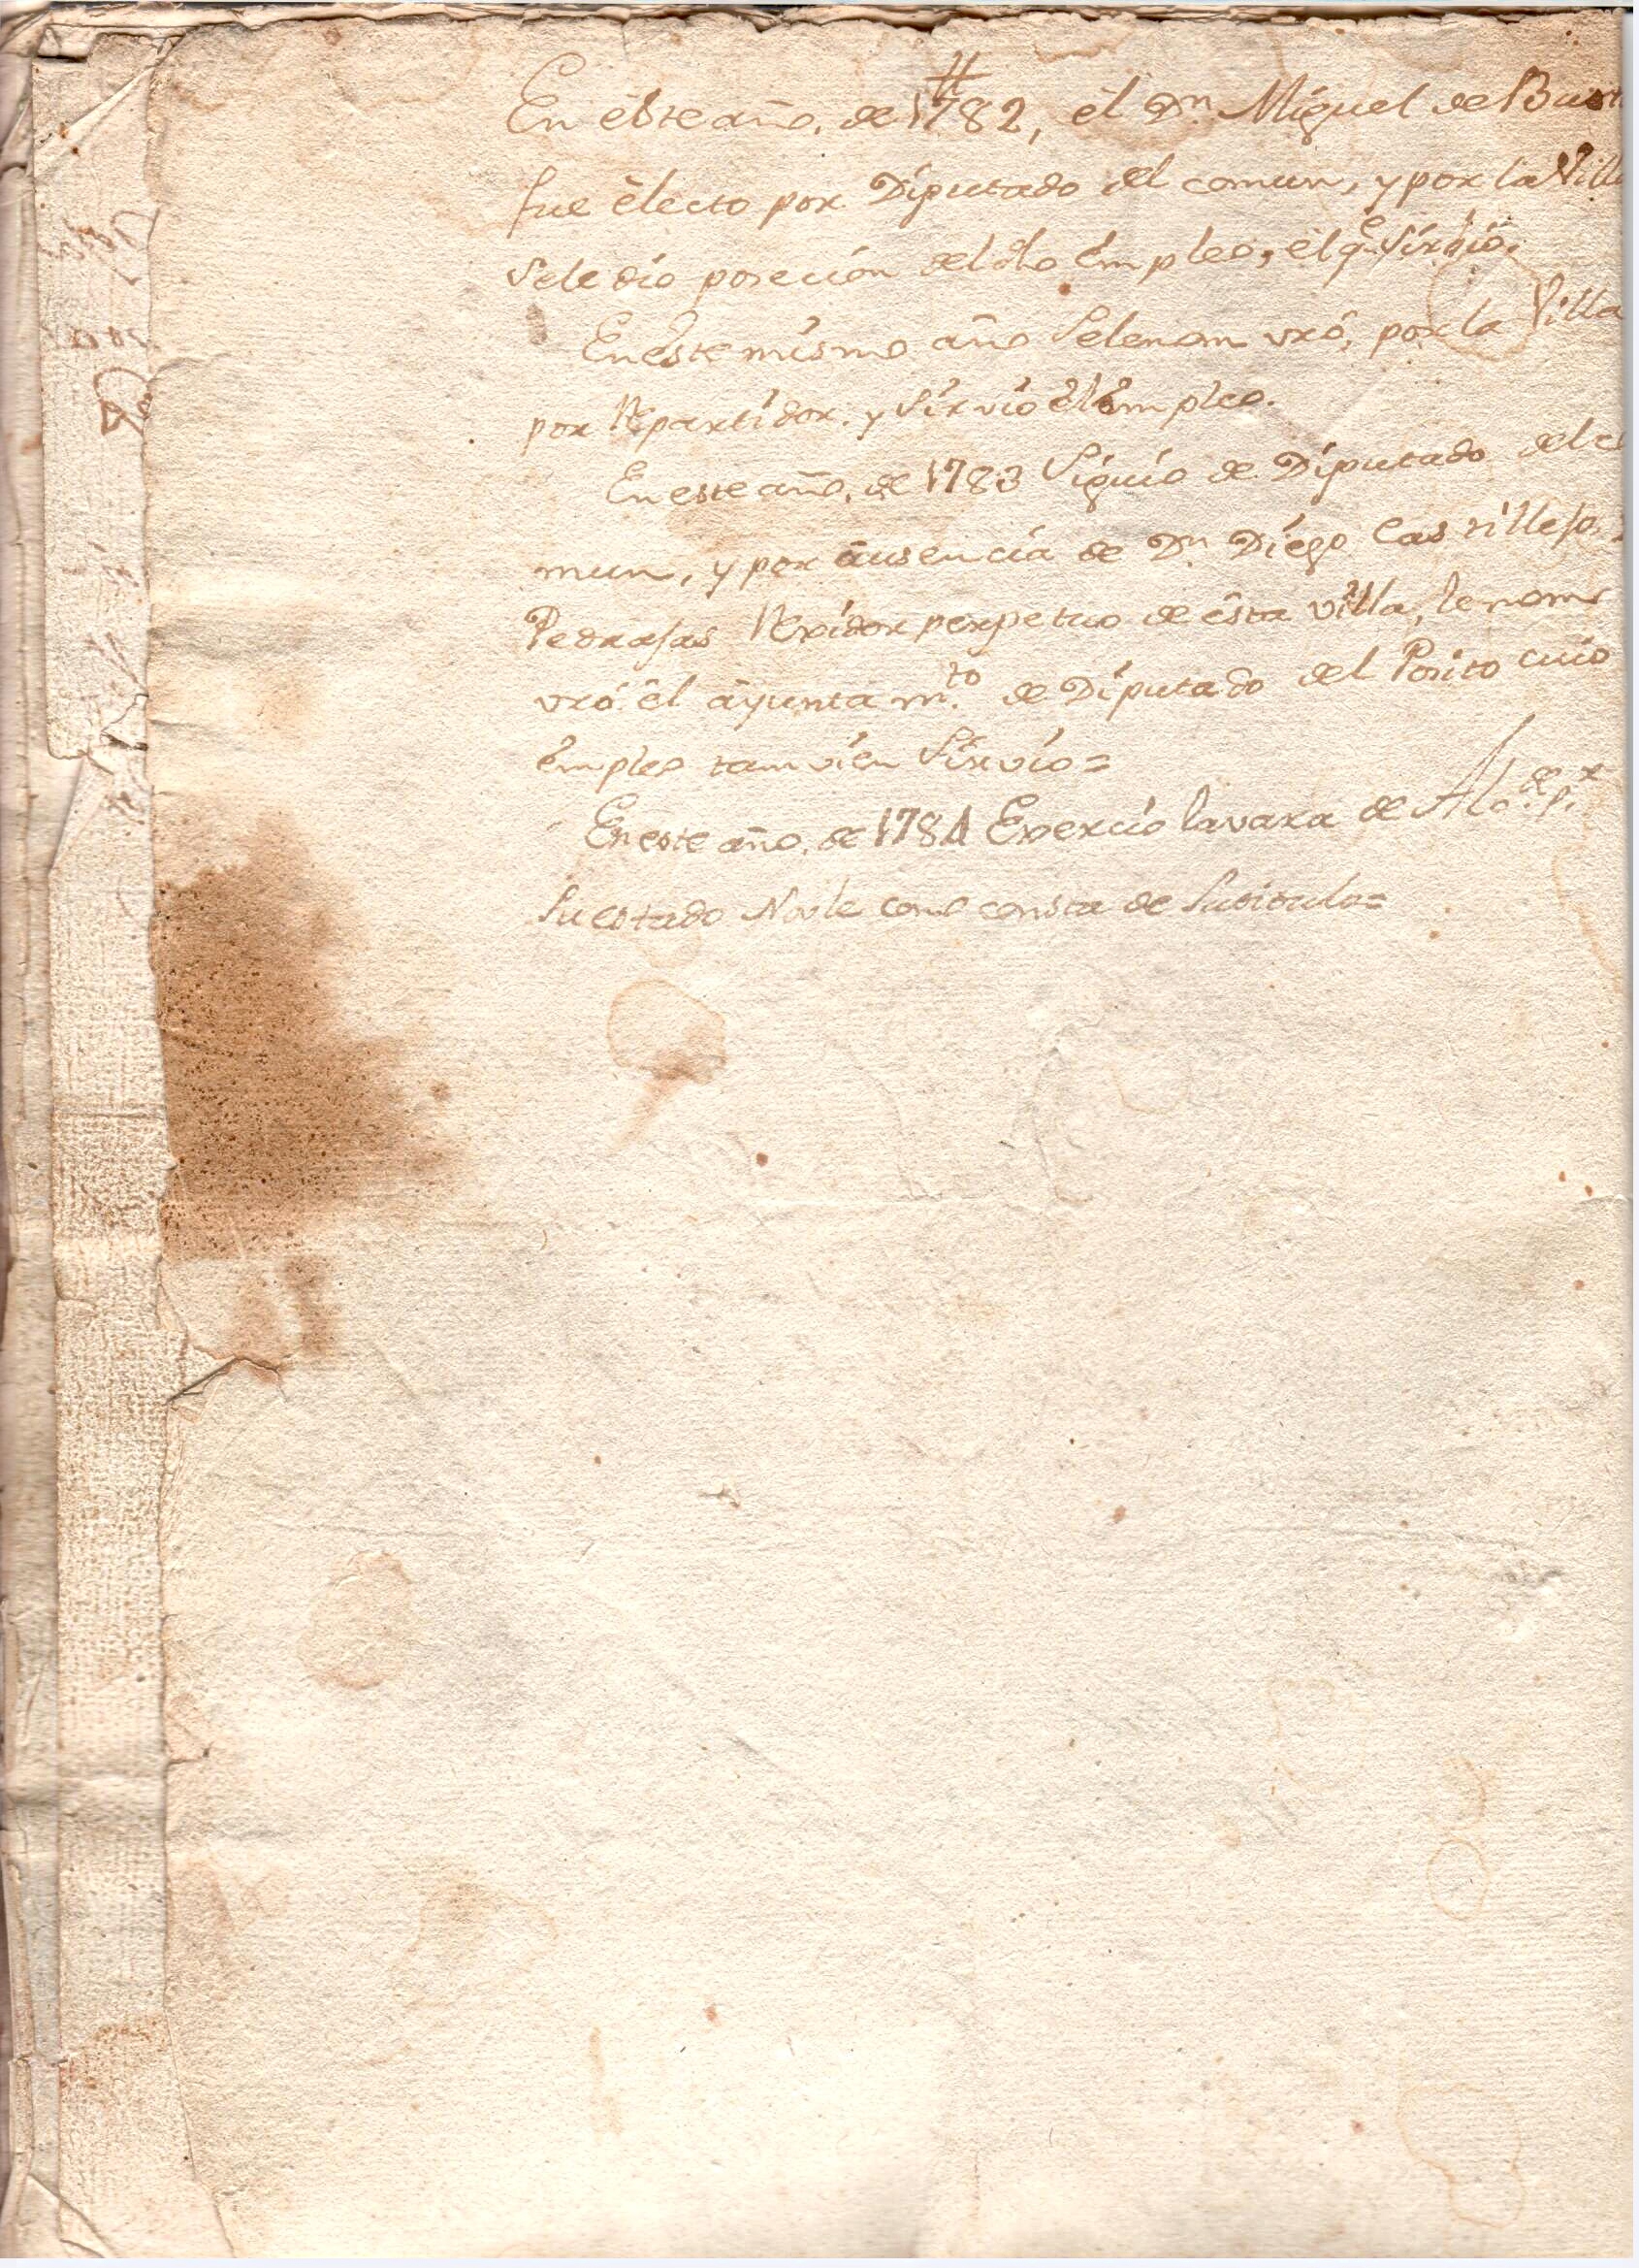 En este año, de 1782, el Dn. Miguel de Bust
fue electo por Diputado del comun, y por la Villa
sele dio poseción del dho Empleo, el qe Sirbio.
En este mismo año Selenom vró, por la Villa
por Repartidor. y Sirvio el Empleo.
En este año, de 1783 Siguio de Diputado del co
mun, y por ausencia de Dn. Diego Castillejo
Pedrajas Rexidor perpetuo de esta villa, le nom
vró el ayuntamto. de Diputado del Posito cuio
empleo tamvien Sirvio=
En este año, de 1784 Exercio la vara de Alcde. pr.
Su estado Noble como consta de Sutitulo=